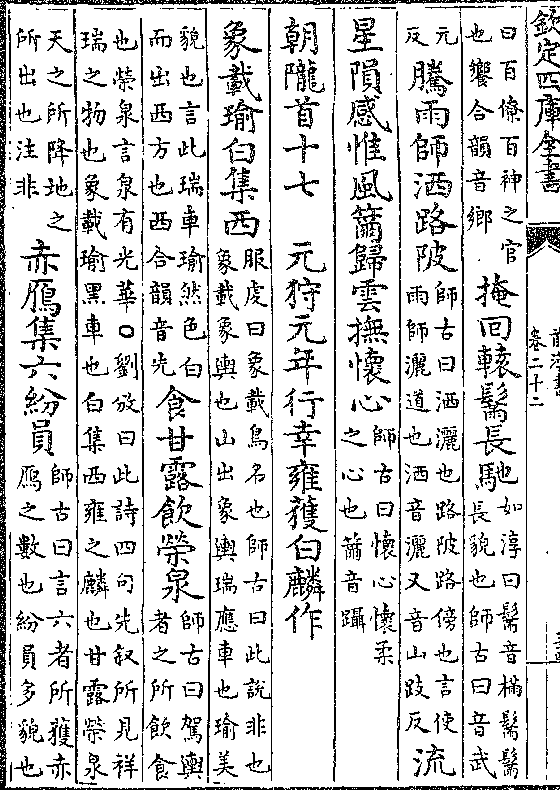 欽定四庫全書
卷二十二
曰百僚百神之官
也饗合韻音鄉
掩回轅鬗長馳
如淳曰鬗音構鬗鬗
長貌也師古曰音武
元反
騰雨師洒路陂
師古曰洒灑也路陂路傍也言使
雨師灑道也洒音灑又音山跂反
流
星隕感惟風籋歸雲撫懷心
師古曰懷心懷柔
之心也籋音躡
朝隴首十七　元狩元年行幸雍獲白麟作
象載瑜白集西
服虔曰象載鳥名也師古曰此說非也
象載象輿也山出象輿瑞應車也瑜美
貌也言此瑞車瑜然色白
而出西方也西合韻音先
食甘露飲榮泉
師古曰駕輿
者之所飲食
也榮泉言泉有光華○劉攽曰此詩四句先叙所見祥
瑞之物也象載瑜黑車也白集西雍之麟也甘露榮泉
天之所降地之
所出也注非
赤鴈集六紛員
師古曰言六者所獲赤
鴈之數也紛員多貌也